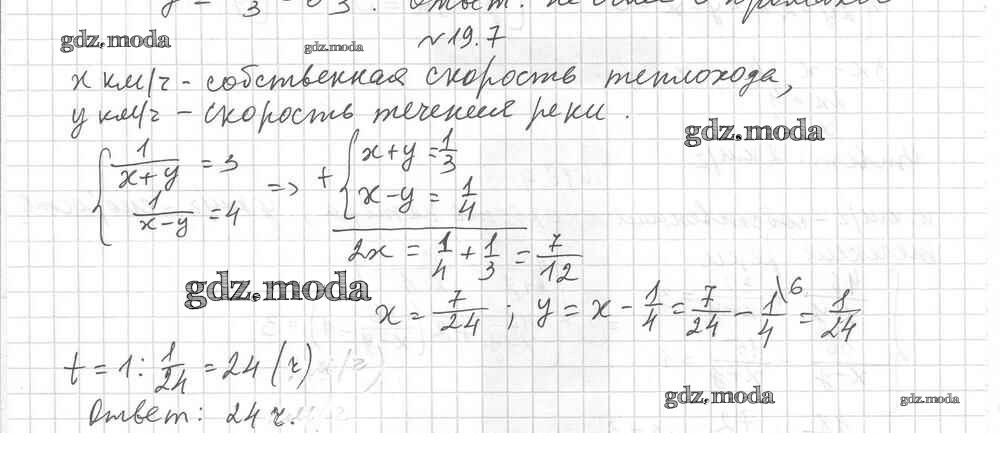 y = 3 - 3. Ответ:
gdz.moda gdz.moda №19.7
x км/ч - собственная скорость теплохода,
y км/ч - скорость течения реки.
gdz.moda
{ 1/(x+y) = 3 => + { x+y = 1/3
1/(x-y) = 4 x-y = 1/4
2x = 1/4 + 1/3 = 7/12
gdz.moda
x = 7/24 ; y = x - 1/4 = 7/24 - 1/4 \6 = 1/24
t = 1 : 1/24 = 24 (ч)
gdz.moda gdz.moda
Ответ: 24 ч.